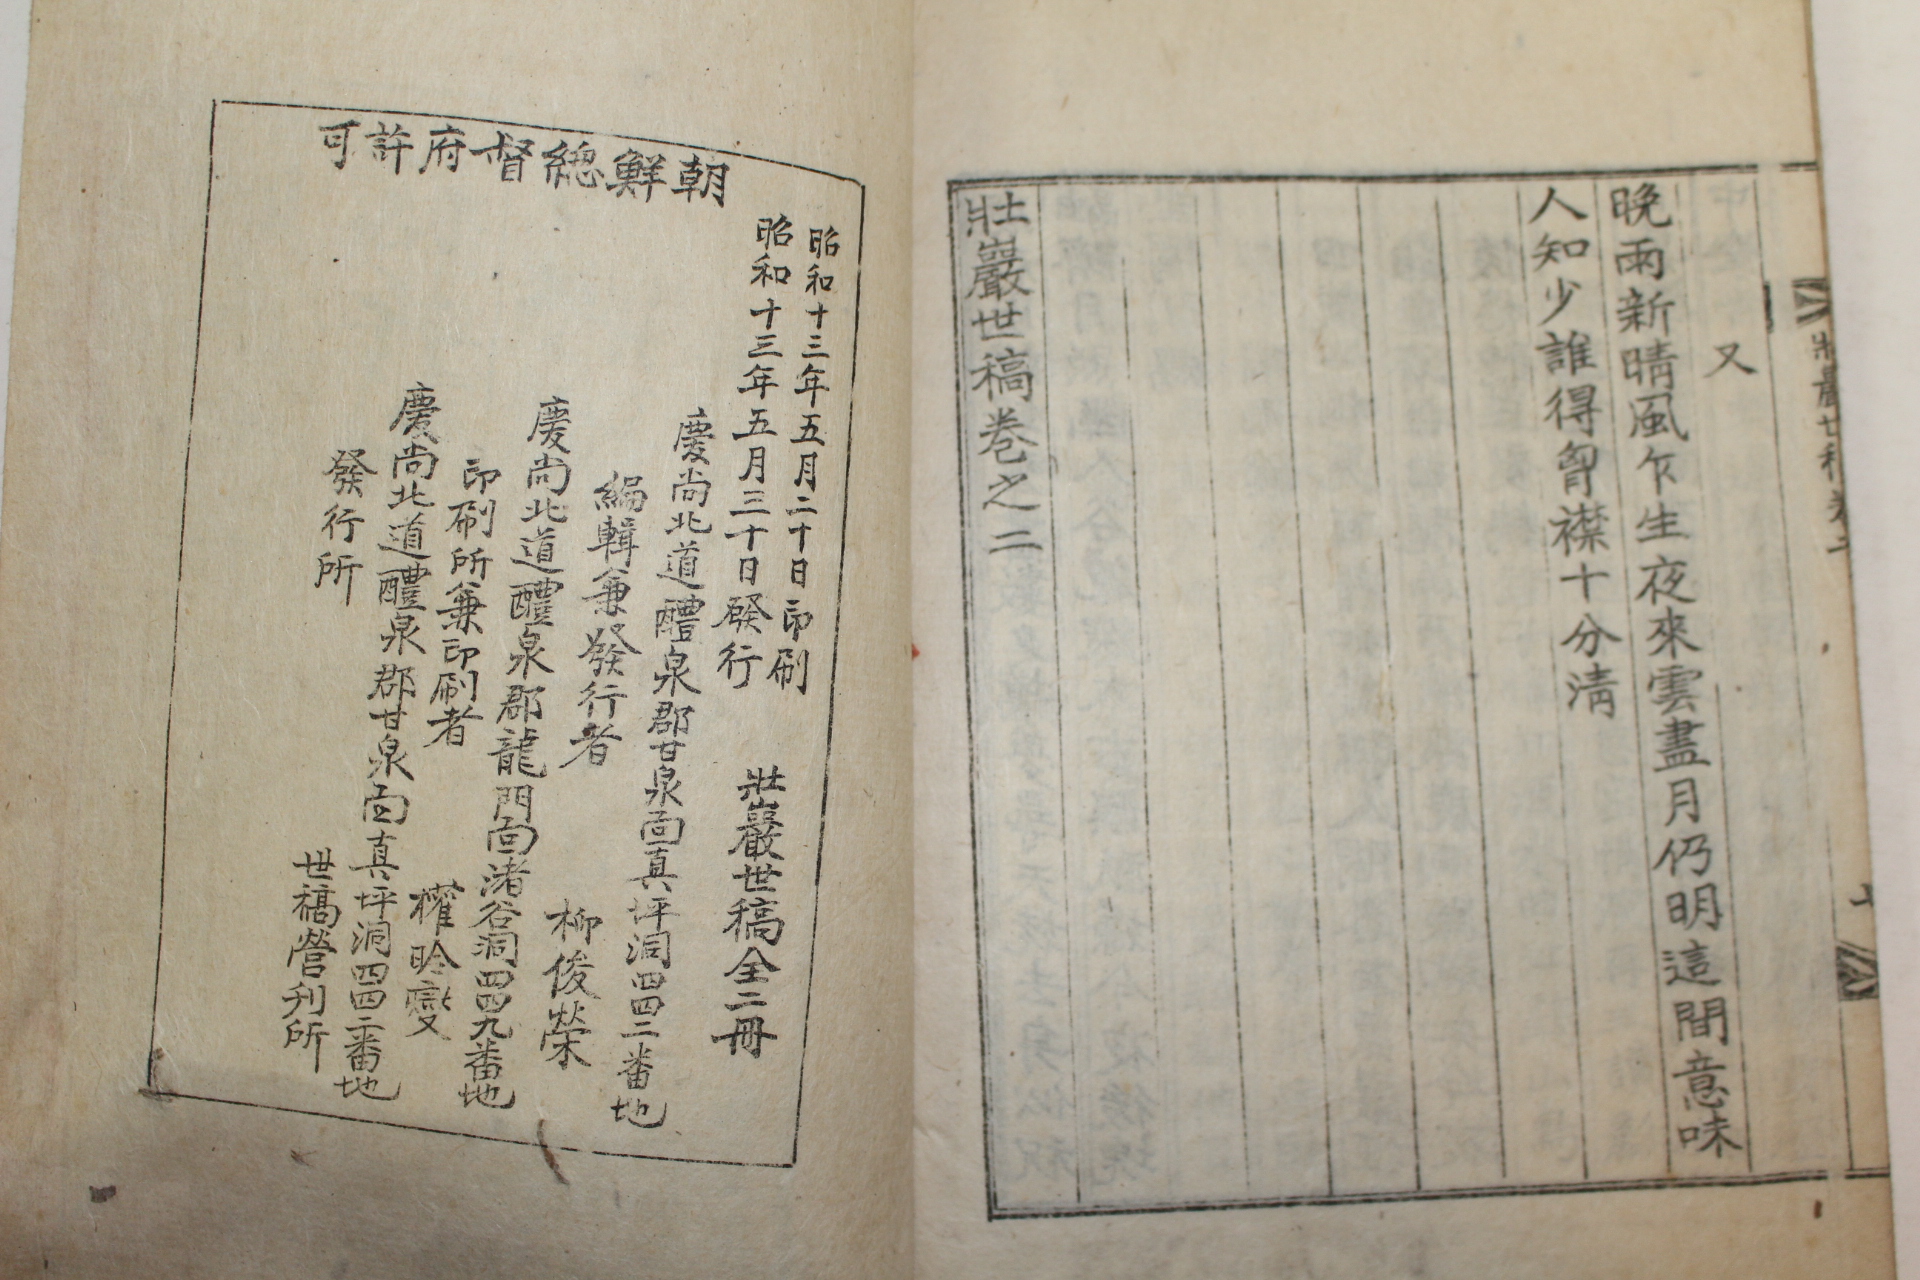 又
晩雨新晴風乍生夜來雲盡月仍明這間意味
人知少誰得胷襟十分淸
壯巖世稿卷之二
朝鮮總督府許可
昭和十三年五月二十日印刷
昭和十三年五月三十日發行
壯巖世稿全二冊
慶尚北道醴泉郡甘泉面真坪洞四四二番地
編輯兼發行者
柳俊榮
慶尚北道醴泉郡龍門面渚谷洞四四九番地
印刷所兼印刷者
權昑變
慶尚北道醴泉郡甘泉面真坪洞四四二番地
發行所
世稿營刊所